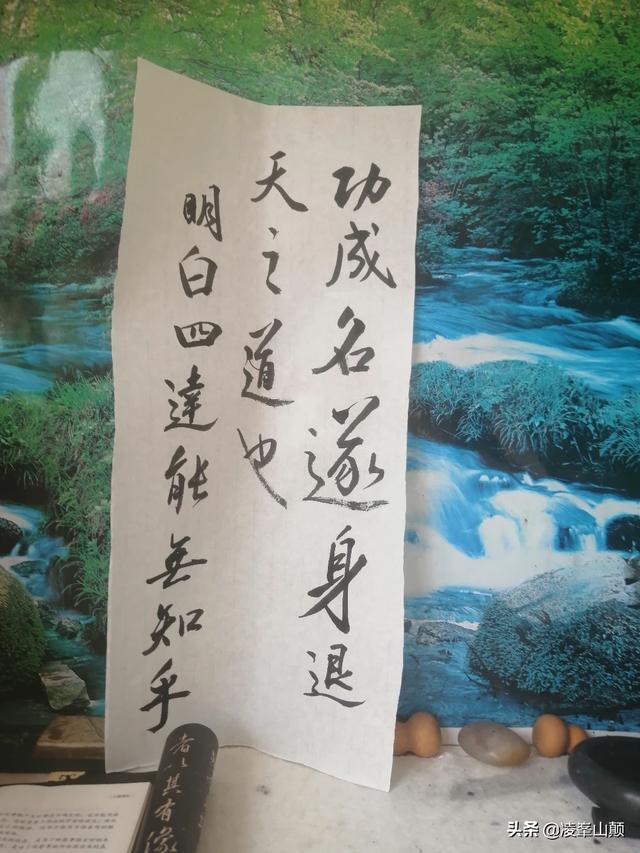 功成名遂身退
天之道也
明白四達能無知乎
者之其有像
头条 @凌峯山颠